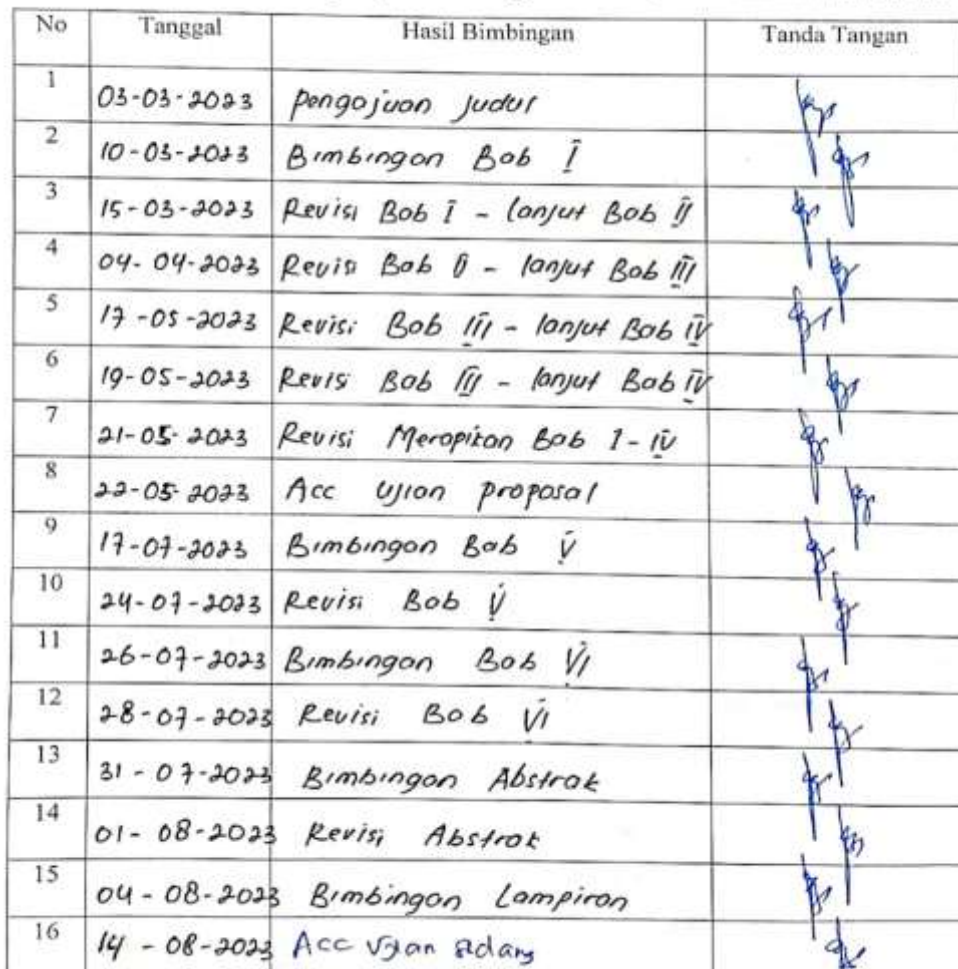 No Tanggal Hasil Bimbingan Tanda Tangan
1 03-03-2023 Pengajuan Judul
2 10-03-2023 Bimbingan Bab I
3 15-03-2023 Revisi Bab I - lanjut Bab II
4 04-04-2023 Revisi Bab II - lanjut Bab III
5 17-05-2023 Revisi Bab III - lanjut Bab IV
6 19-05-2023 Revisi Bab III - lanjut Bab IV
7 21-05-2023 Revisi Merapikan Bab I - IV
8 22-05-2023 Acc Ujian proposal
9 17-07-2023 Bimbingan Bab V
10 24-07-2023 Revisi Bab V
11 26-07-2023 Bimbingan Bab VI
12 28-07-2023 Revisi Bab VI
13 31-07-2023 Bimbingan Abstrak
14 01-08-2023 Revisi Abstrak
15 04-08-2023 Bimbingan Lampiran
16 14-08-2023 Acc Ujian sidang